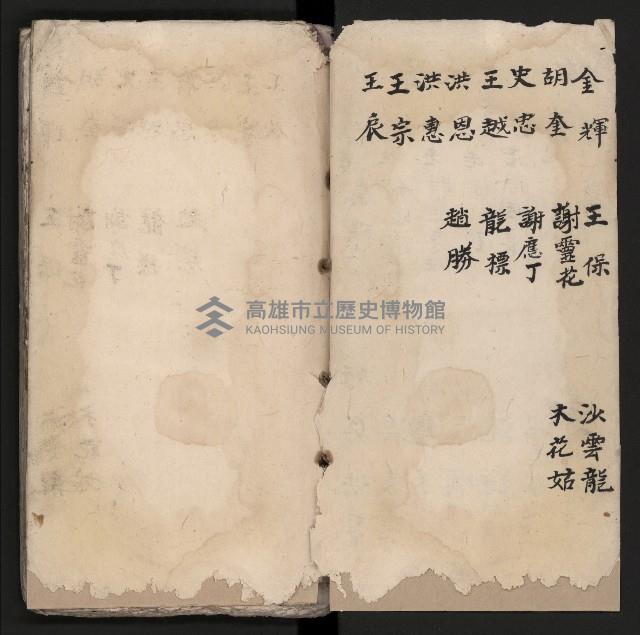 金輝
胡奎
史忠
王越
洪恩
洪惠
王宗
王辰
王保
謝靈花
謝應丁
龍標
趙勝
沙雲龍
木花姑
高雄市立歷史博物館
KAOHSIUNG MUSEUM OF HISTORY